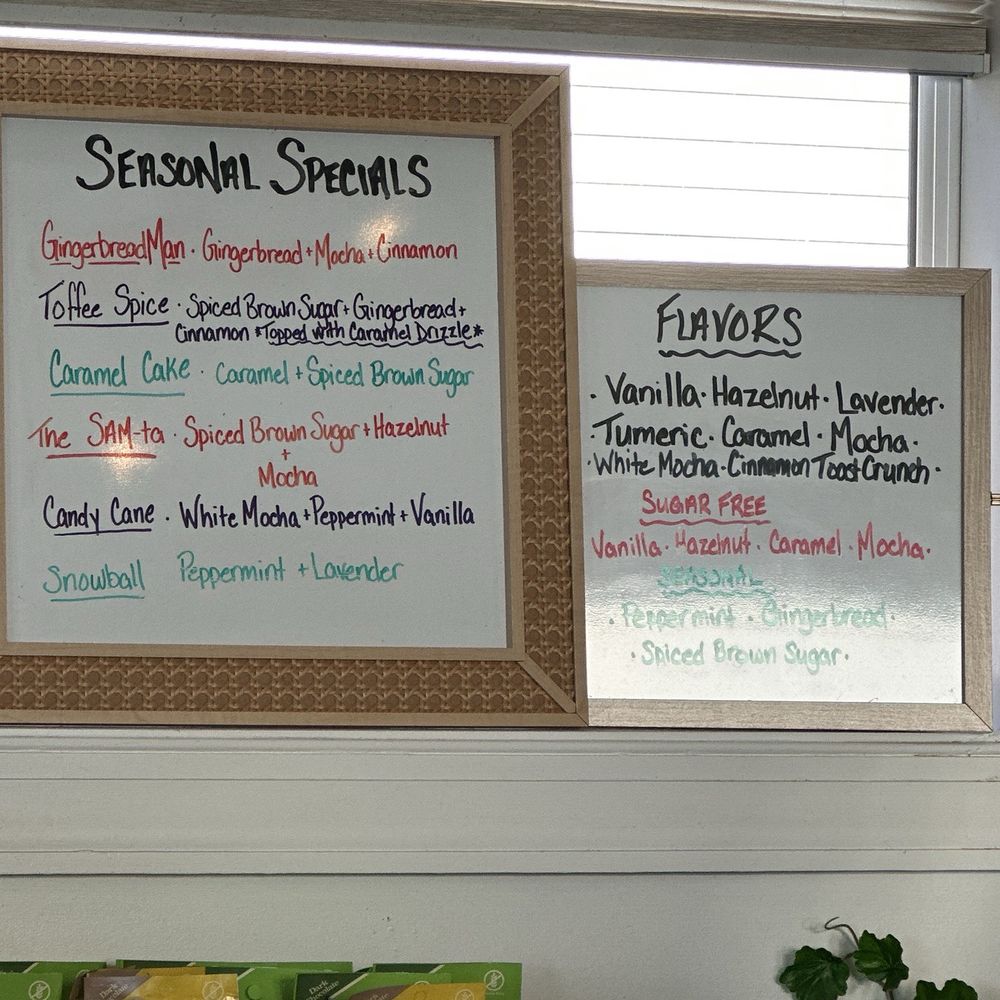 SEASONAL SPECIALS
GingerbreadMan · Gingerbread + Mocha + Cinnamon
Toffee Spice · Spiced Brown Sugar + Gingerbread +
Cinnamon *Topped with Caramel Drizzle*
Caramel Cake · Caramel + Spiced Brown Sugar
The SAM-ta · Spiced Brown Sugar + Hazelnut
+
Mocha
Candy Cane · White Mocha + Peppermint + Vanilla
Snowball Peppermint + Lavender
FLAVORS
· Vanilla · Hazelnut · Lavender ·
· Tumeric · Caramel · Mocha ·
· White Mocha · Cinnamon Toast Crunch ·
SUGAR FREE
Vanilla · Hazelnut · Caramel · Mocha ·
SEASONAL
· Peppermint · Gingerbread ·
· Spiced Brown Sugar ·
Dark Chocolate
Dark Chocolate